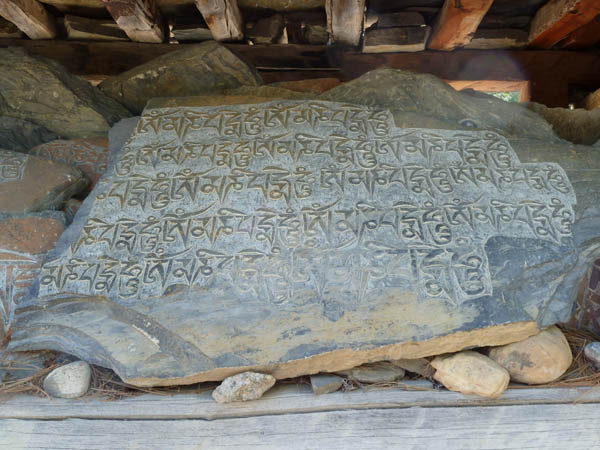 ཨོཾ་མ་ཎི་པདྨེ་ཧཱུྃ་ཨོཾ་མ་ཎི་པདྨེ་ཧཱུྃ
ཨོཾ་མ་ཎི་པདྨེ་ཧཱུྃ་ཨོཾ་མ་ཎི་པདྨེ་ཧཱུྃ་ཨོཾ་མ་ཎི་པདྨེ་ཧཱུྃ
པདྨེ་ཧཱུྃ་ཨོཾ་མ་ཎི་པདྨེ་ཧཱུྃ་ཨོཾ་མ་ཎི་པདྨེ་ཧཱུྃ་ཨོཾ་མ་ཎི་པདྨེ་ཧཱུྃ
ཎི་པདྨེ་ཧཱུྃ་ཨོཾ་མ་ཎི་པདྨེ་ཧཱུྃ་ཨོཾ་མ་ཎི་པདྨེ་ཧཱུྃ་ཨོཾ་མ་ཎི་པདྨེ་ཧཱུྃ
མ་ཎི་པདྨེ་ཧཱུྃ་ཨོཾ་མ་ཎི་པདྨེ་ཧཱུྃ་ཨོཾ་མ་ཎི་པདྨེ་ཧཱུྃ